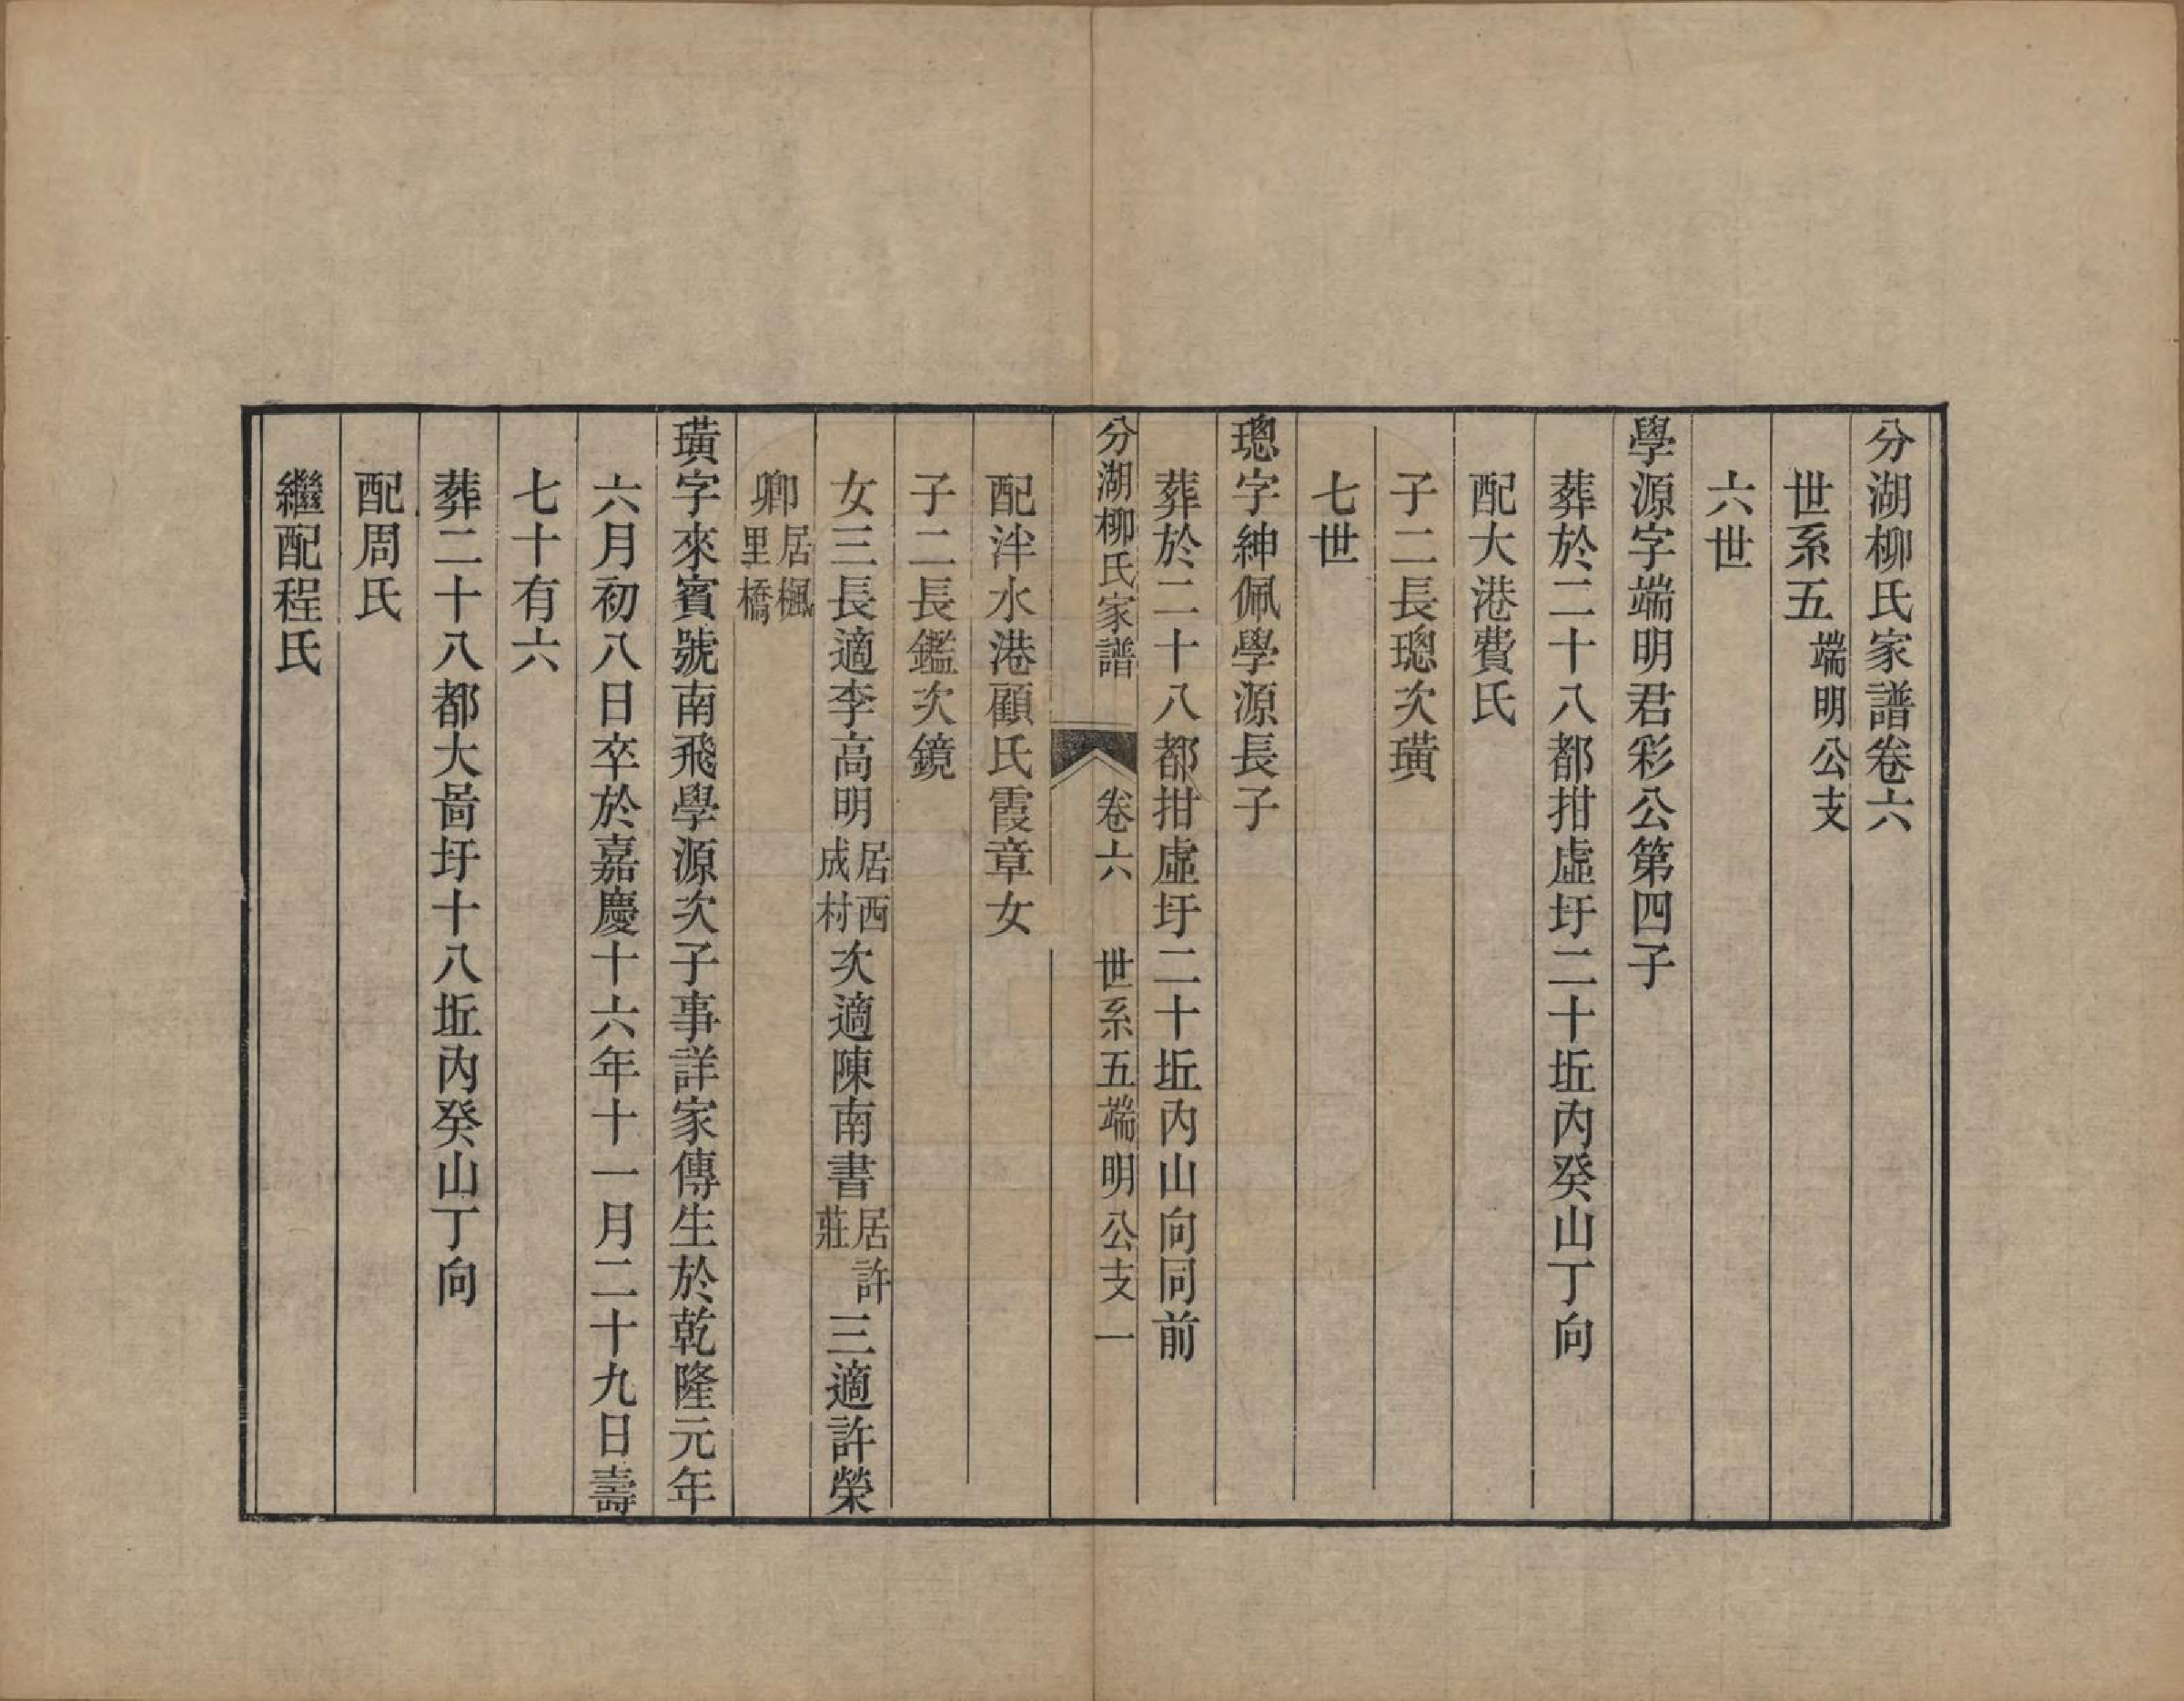 分湖柳氏家譜卷六
世系五 端明公支
六世
學源字端明君彩公第四子
葬於二十八都拑虛圩二十坵內癸山丁向
配大港費氏
子二長璁次璜
七世
璁字紳佩學源長子
葬於二十八都拑虛圩二十坵內山向同前
分湖柳氏家譜 卷六 世系五端明公支 一
配泮水港顧氏霞章女
子二長鑑次鏡
女三長適李高明居西成村次適陳南書居許莊三適許榮
卿居楓里橋
璜字來賓號南飛學源次子事詳家傳生於乾隆元年
六月初八日卒於嘉慶十六年十一月二十九日壽
七十有六
葬二十八都大啚圩十八坵內癸山丁向
配周氏
繼配程氏